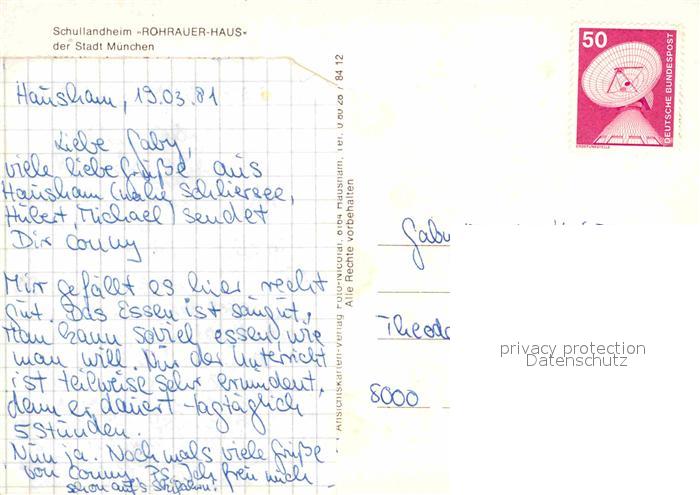 Schullandheim »ROHRAUER-HAUS«
der Stadt München
Hausham, 19.03.81
Liebe Gaby,
viele liebe Grüße aus
Hausham (nahe Schliersee,
Hubert, Michael) sendet
Dir Conny.
Mir gefällt es hier recht
gut. Das Essen ist saugut,
man kann soviel essen, wie
man will. Nur der Unterricht
ist teilweise sehr ermüdent,
denn er dauert tagtäglich
5 Stunden.
Nun ja. Nochmals viele Grüße
von Conny. PS. Ich freu mich
schon auf's Skifahren!
Ansichtskarten-Verlag Foto-Nicolai, 8164 Hausham, Tel. 0 80 26 / 84 12
Alle Rechte vorbehalten
50
DEUTSCHE BUNDESPOST
ERDEFUNKSTELLE
Gaby
Theodo
8000
privacy protection
Datenschutz